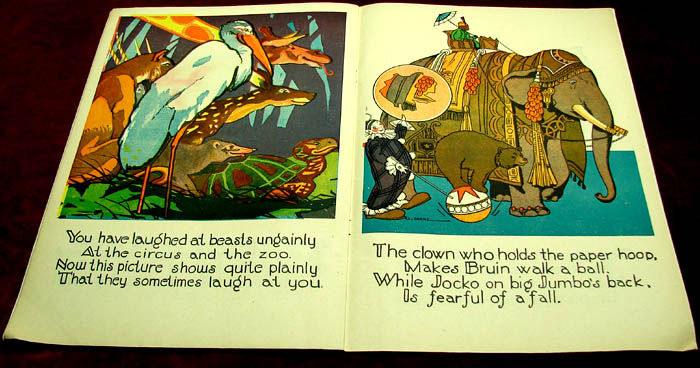 You have laughed at beasts ungainly
At the circus and the zoo.
Now this picture shows quite plainly
That they sometimes laugh at you.
The clown who holds the paper hoop,
Makes Bruin walk a ball.
While Jocko on big Jumbo's back,
Is fearful of a fall.